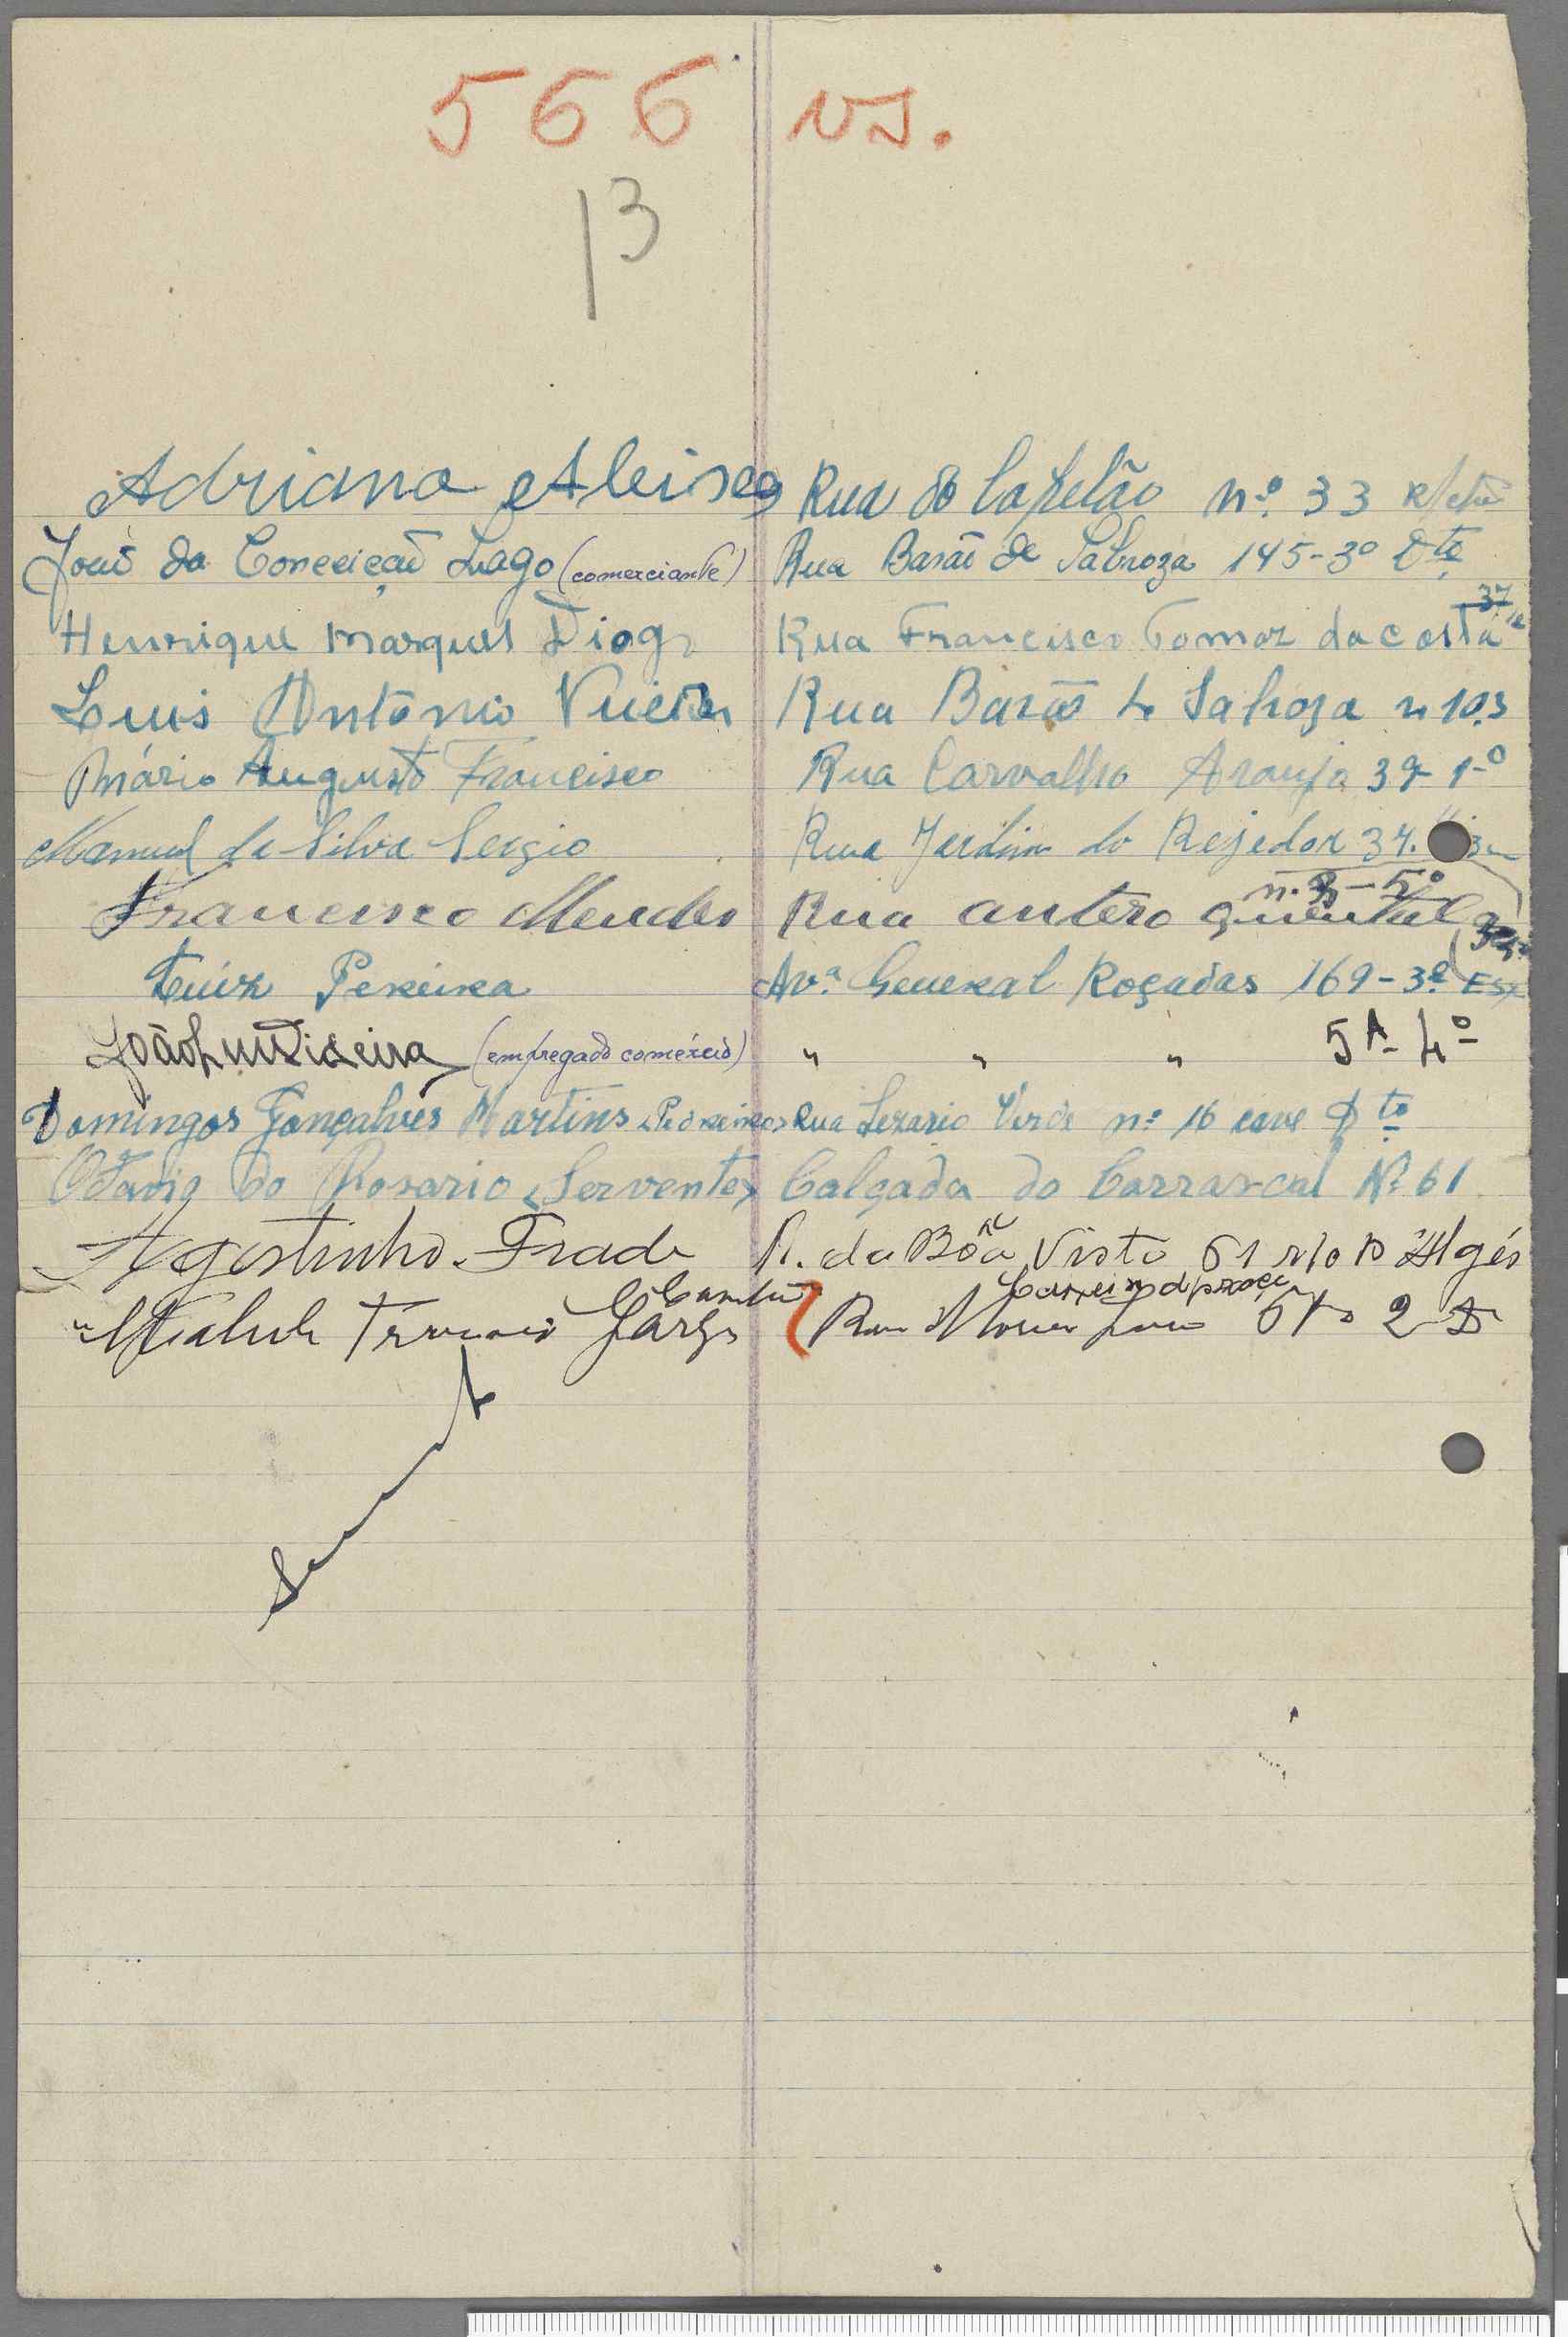 566 vs.
13
Adriano Aleixo Rua do Capelão nº 33 r/chã
João da Conceição Lago (comerciante) Rua Barão de Sabroza 145-3º Dto
37
Henrique Marques Diogo Rua Francisco Tomaz da Costa
Luis António Vieira Rua Barão de Sabroza n 103
Mário Augusto Francisco Rua Carvalho Araujo 39 1º
Manuel da Silva Sergio Rua Jardim do Rejedor 34.
n. 3 - 5º
Francisco Mendes Rua antero quental
Luiz Pereira Avª General Roçadas 169-3º Esq
João Luis Vieira (empregado comércio) " " " 5A-4º
Domingos Gonçalves Martins (Pedreiro) Rua Sezario Verde nº 16 cave Dto
Otavio do Rosario (Servente) Calçada do Carrascal Nº 61
Agostinho Frade R. da Bôa Vista 61 r/c D Algés
Rua 2 D